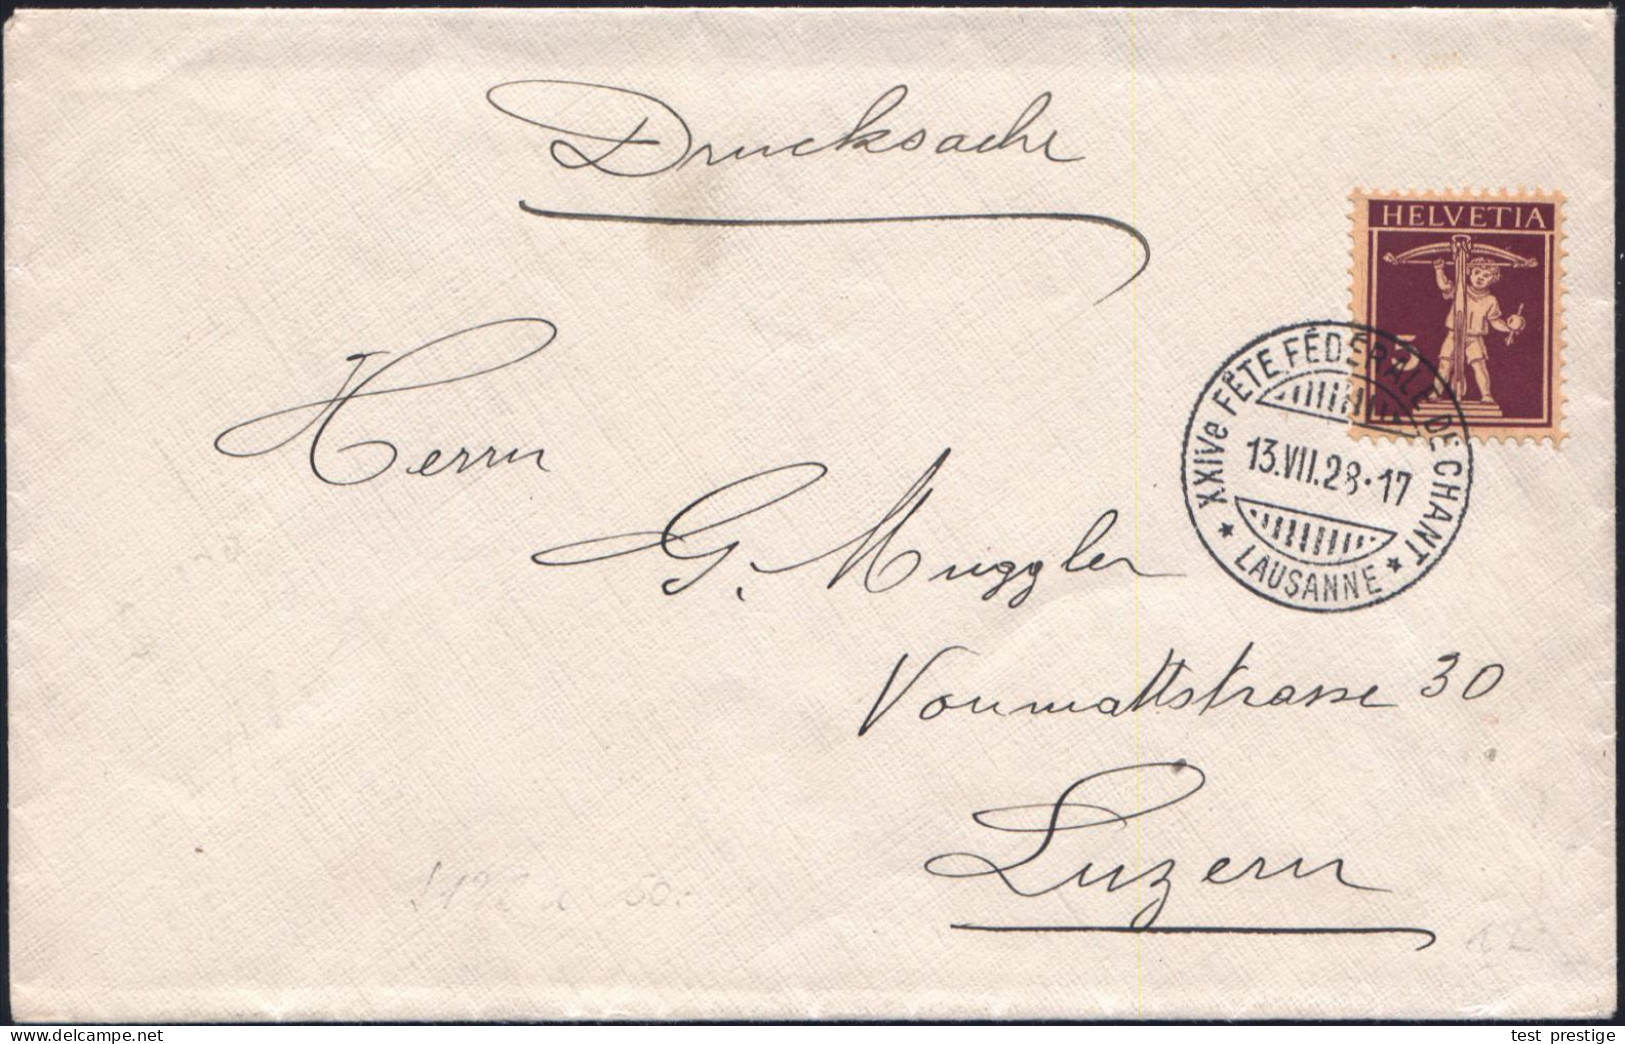 Drucksache
HELVETIA
5
XXIVe FÊTE FÉDÉRALE DE CHANT
13.VII.28·17
★ LAUSANNE ★
Herrn
G. Muggler
Vonmattstrasse 30
Luzern
test_prestige